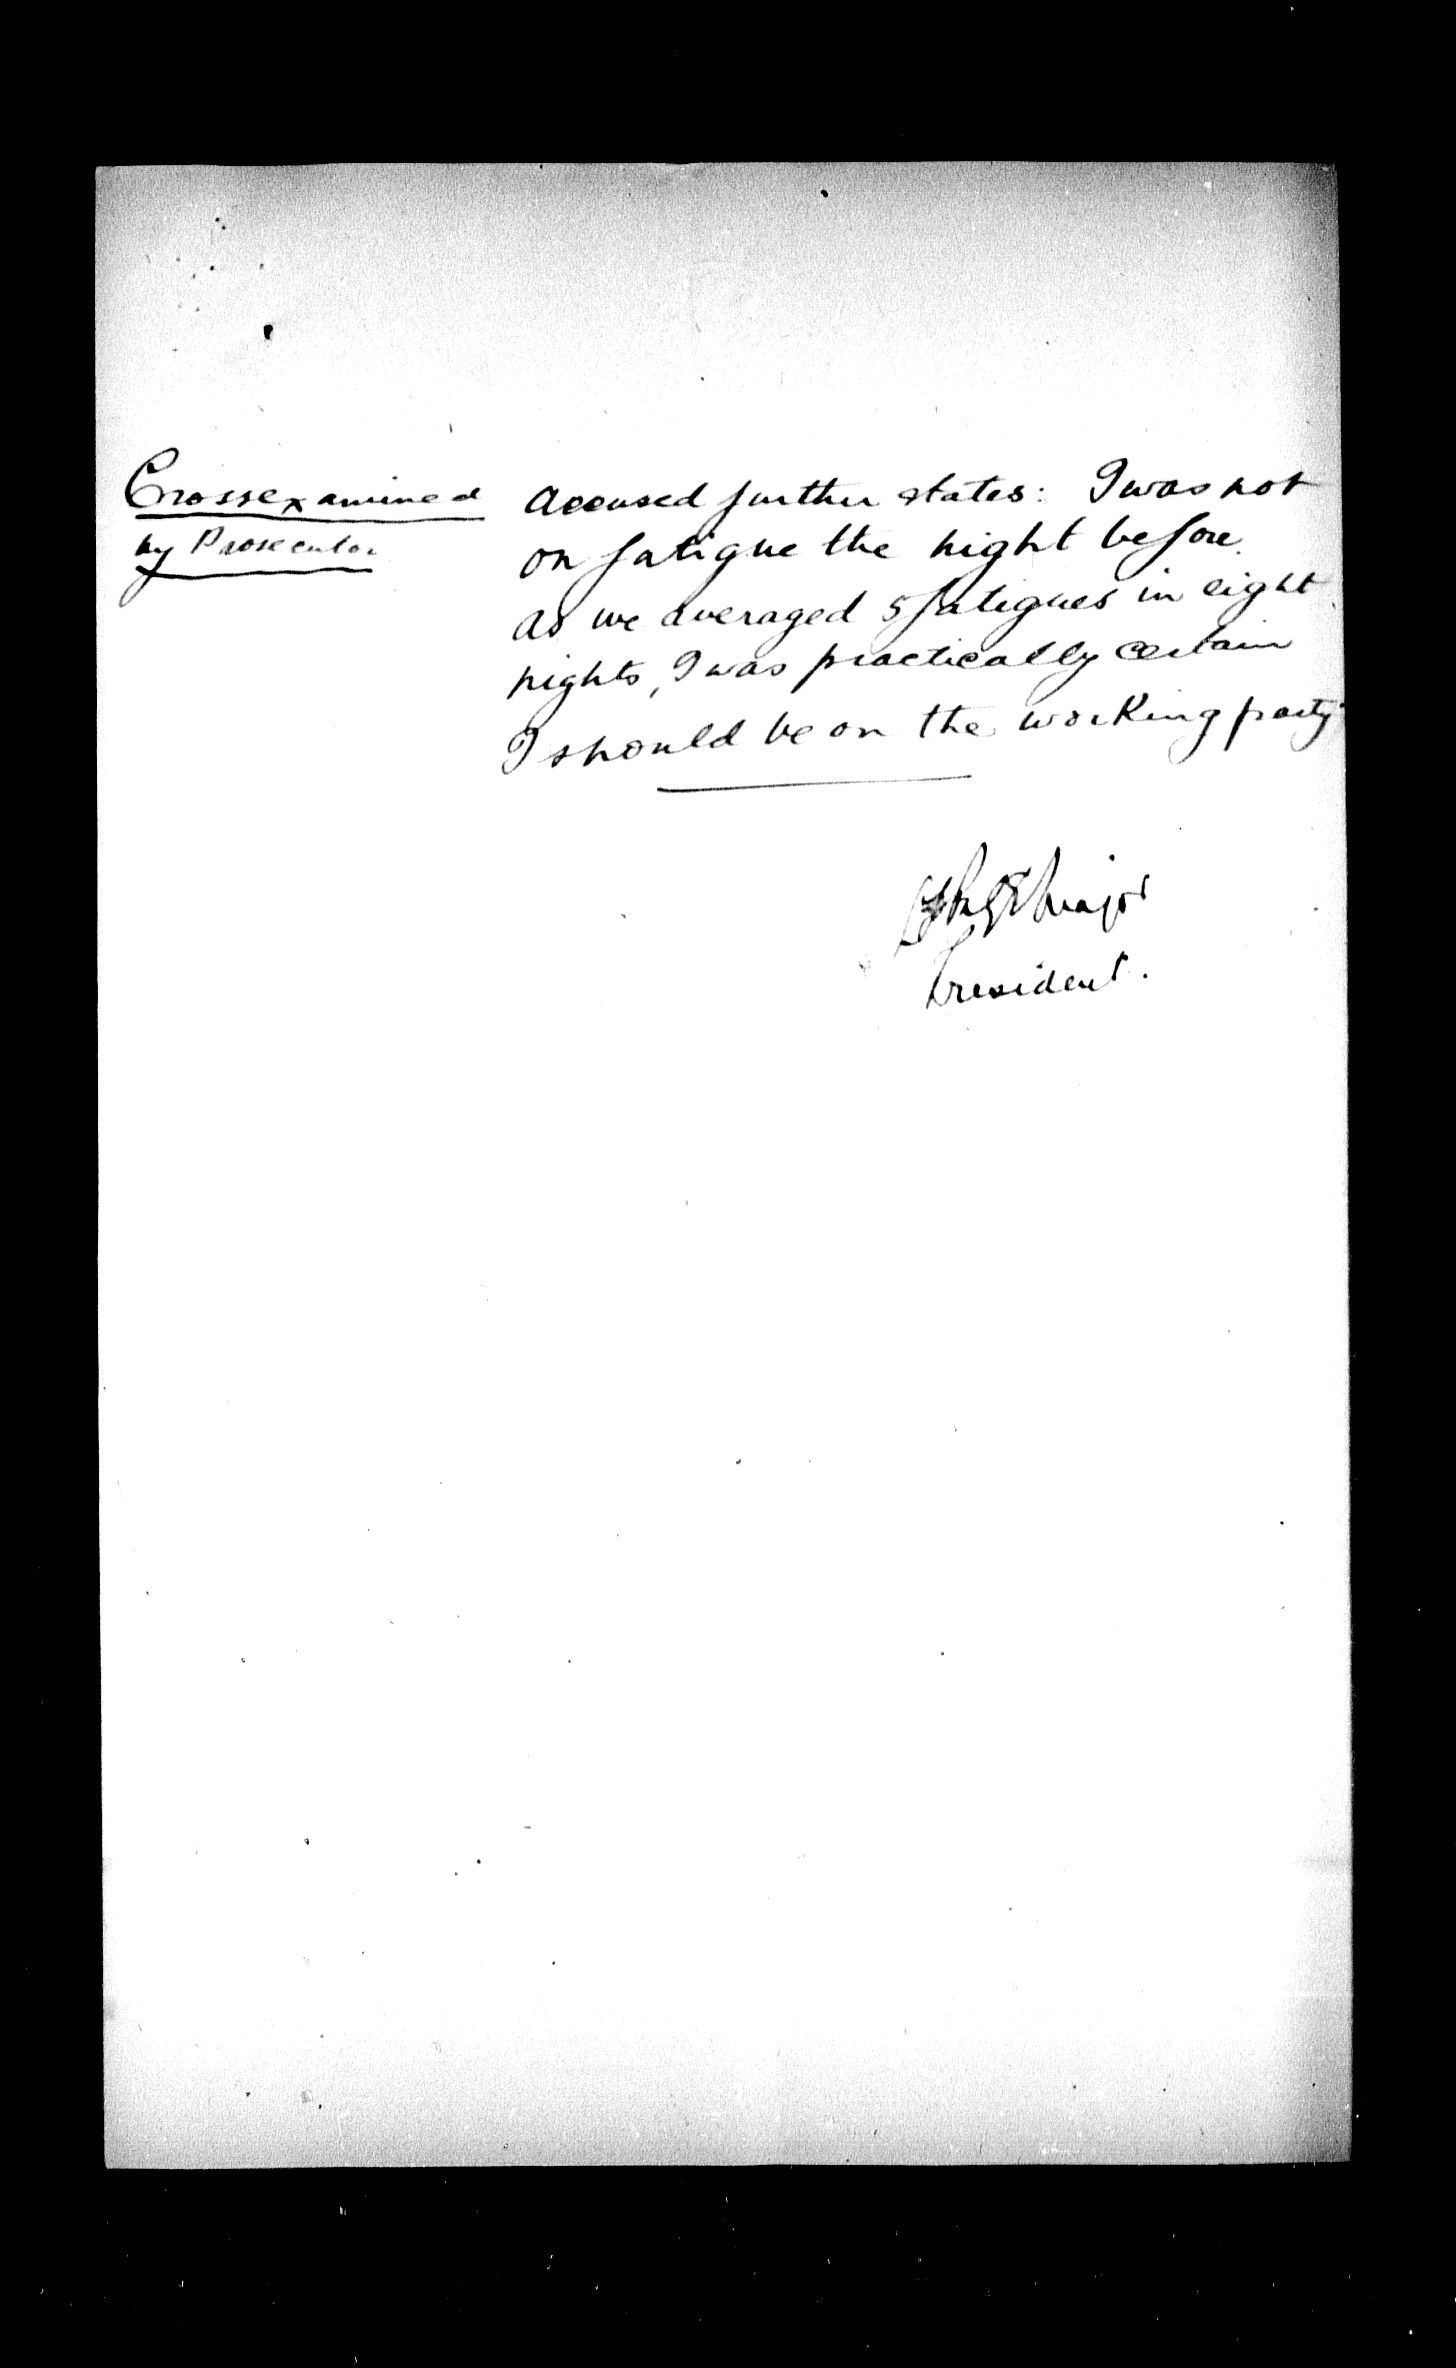 Crossexamined
by Prosecutor
Accused further states: I was not
on fatigue the night before.
As we averaged 5 fatigues in eight
nights, I was practically certain
I should be on the working party.
Major
President.